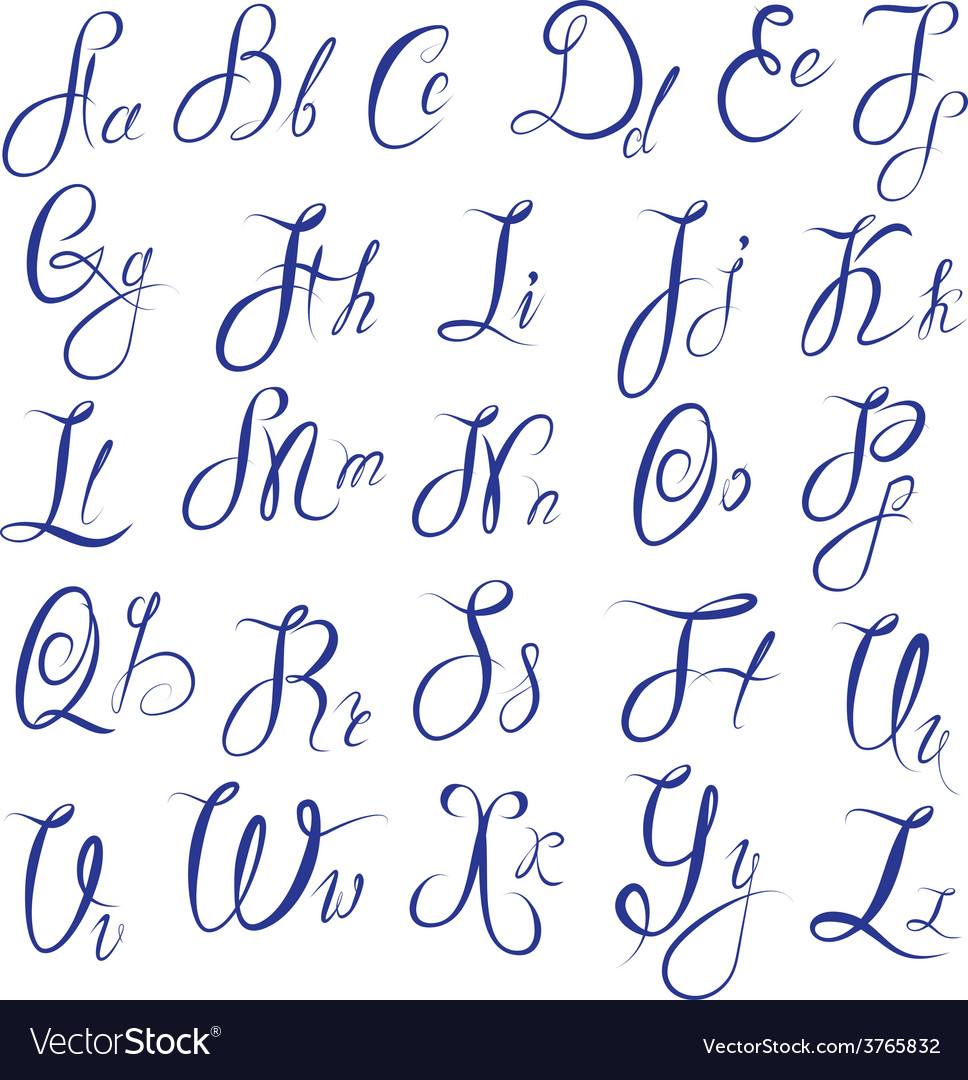 Aa Bb Cc Dd Ee Ff
Gg Hh Ii Jj Kk
Ll Mm Nn Oo Pp
Qq Rr Ss Tt Uu
Vv Ww Xx Yy Zz
VectorStock® VectorStock.com/3765832